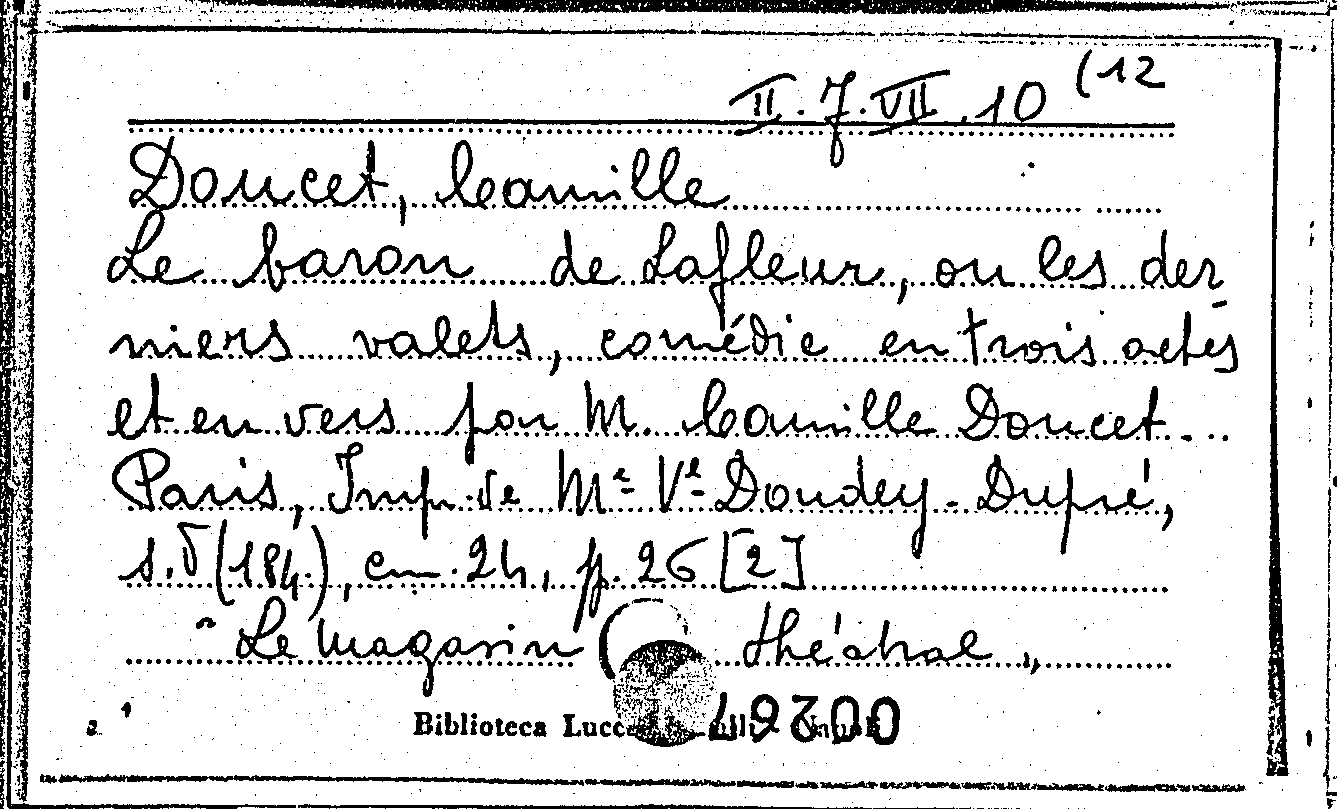 II.7.VII.10 (12
Doucet, Camille
Le baron de Lafleur, ou les der-
niers valets, comédie en trois actes
et en vers par M. Camille Doucet...
Paris, Imp. de Me Ve Doudey-Dupré,
s.d (184.), cm. 24, pp. 26 [2]
"Le Magasin théâtral"
Biblioteca